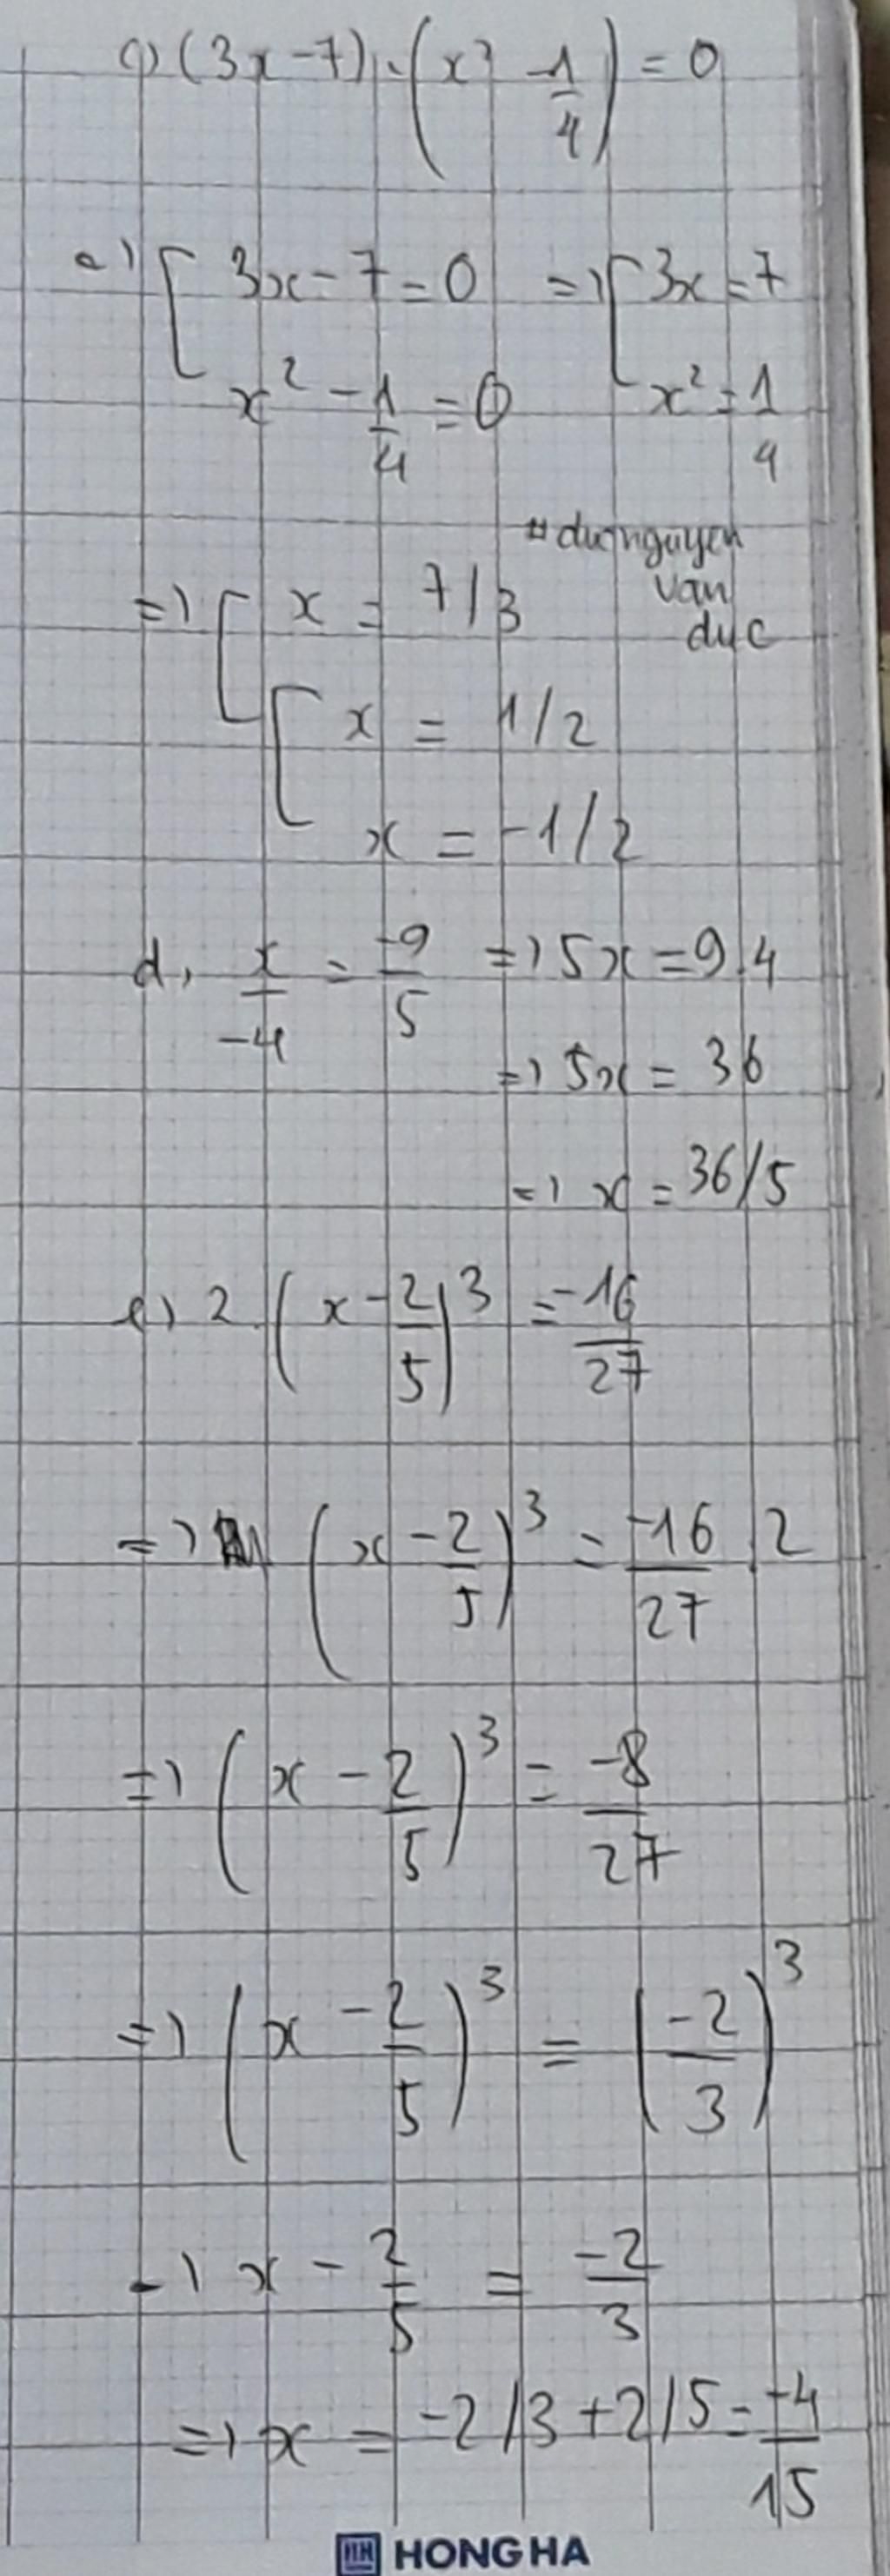 c) (3x-7).(x² -1/4) = 0
=) [ 3x-7=0 =) [ 3x=7
x² -1/4 =0 x²=1/4
#ducnguyen
van
duc
=) [ x = 7/3
[ x = 1/2
x = -1/2
d, x/-4 = -9/5 =) 5x=9.4
=) 5x = 36
=) x = 36/5
e) 2.(x-2/5)³ = -16/27
=) (x-2/5)³ = -16/27 . 2
=) (x-2/5)³ = -8/27
=) (x-2/5)³ = (-2/3)³
=) x-2/5 = -2/3
=) x = -2/3+2/5= -4/15
HH HONG HA